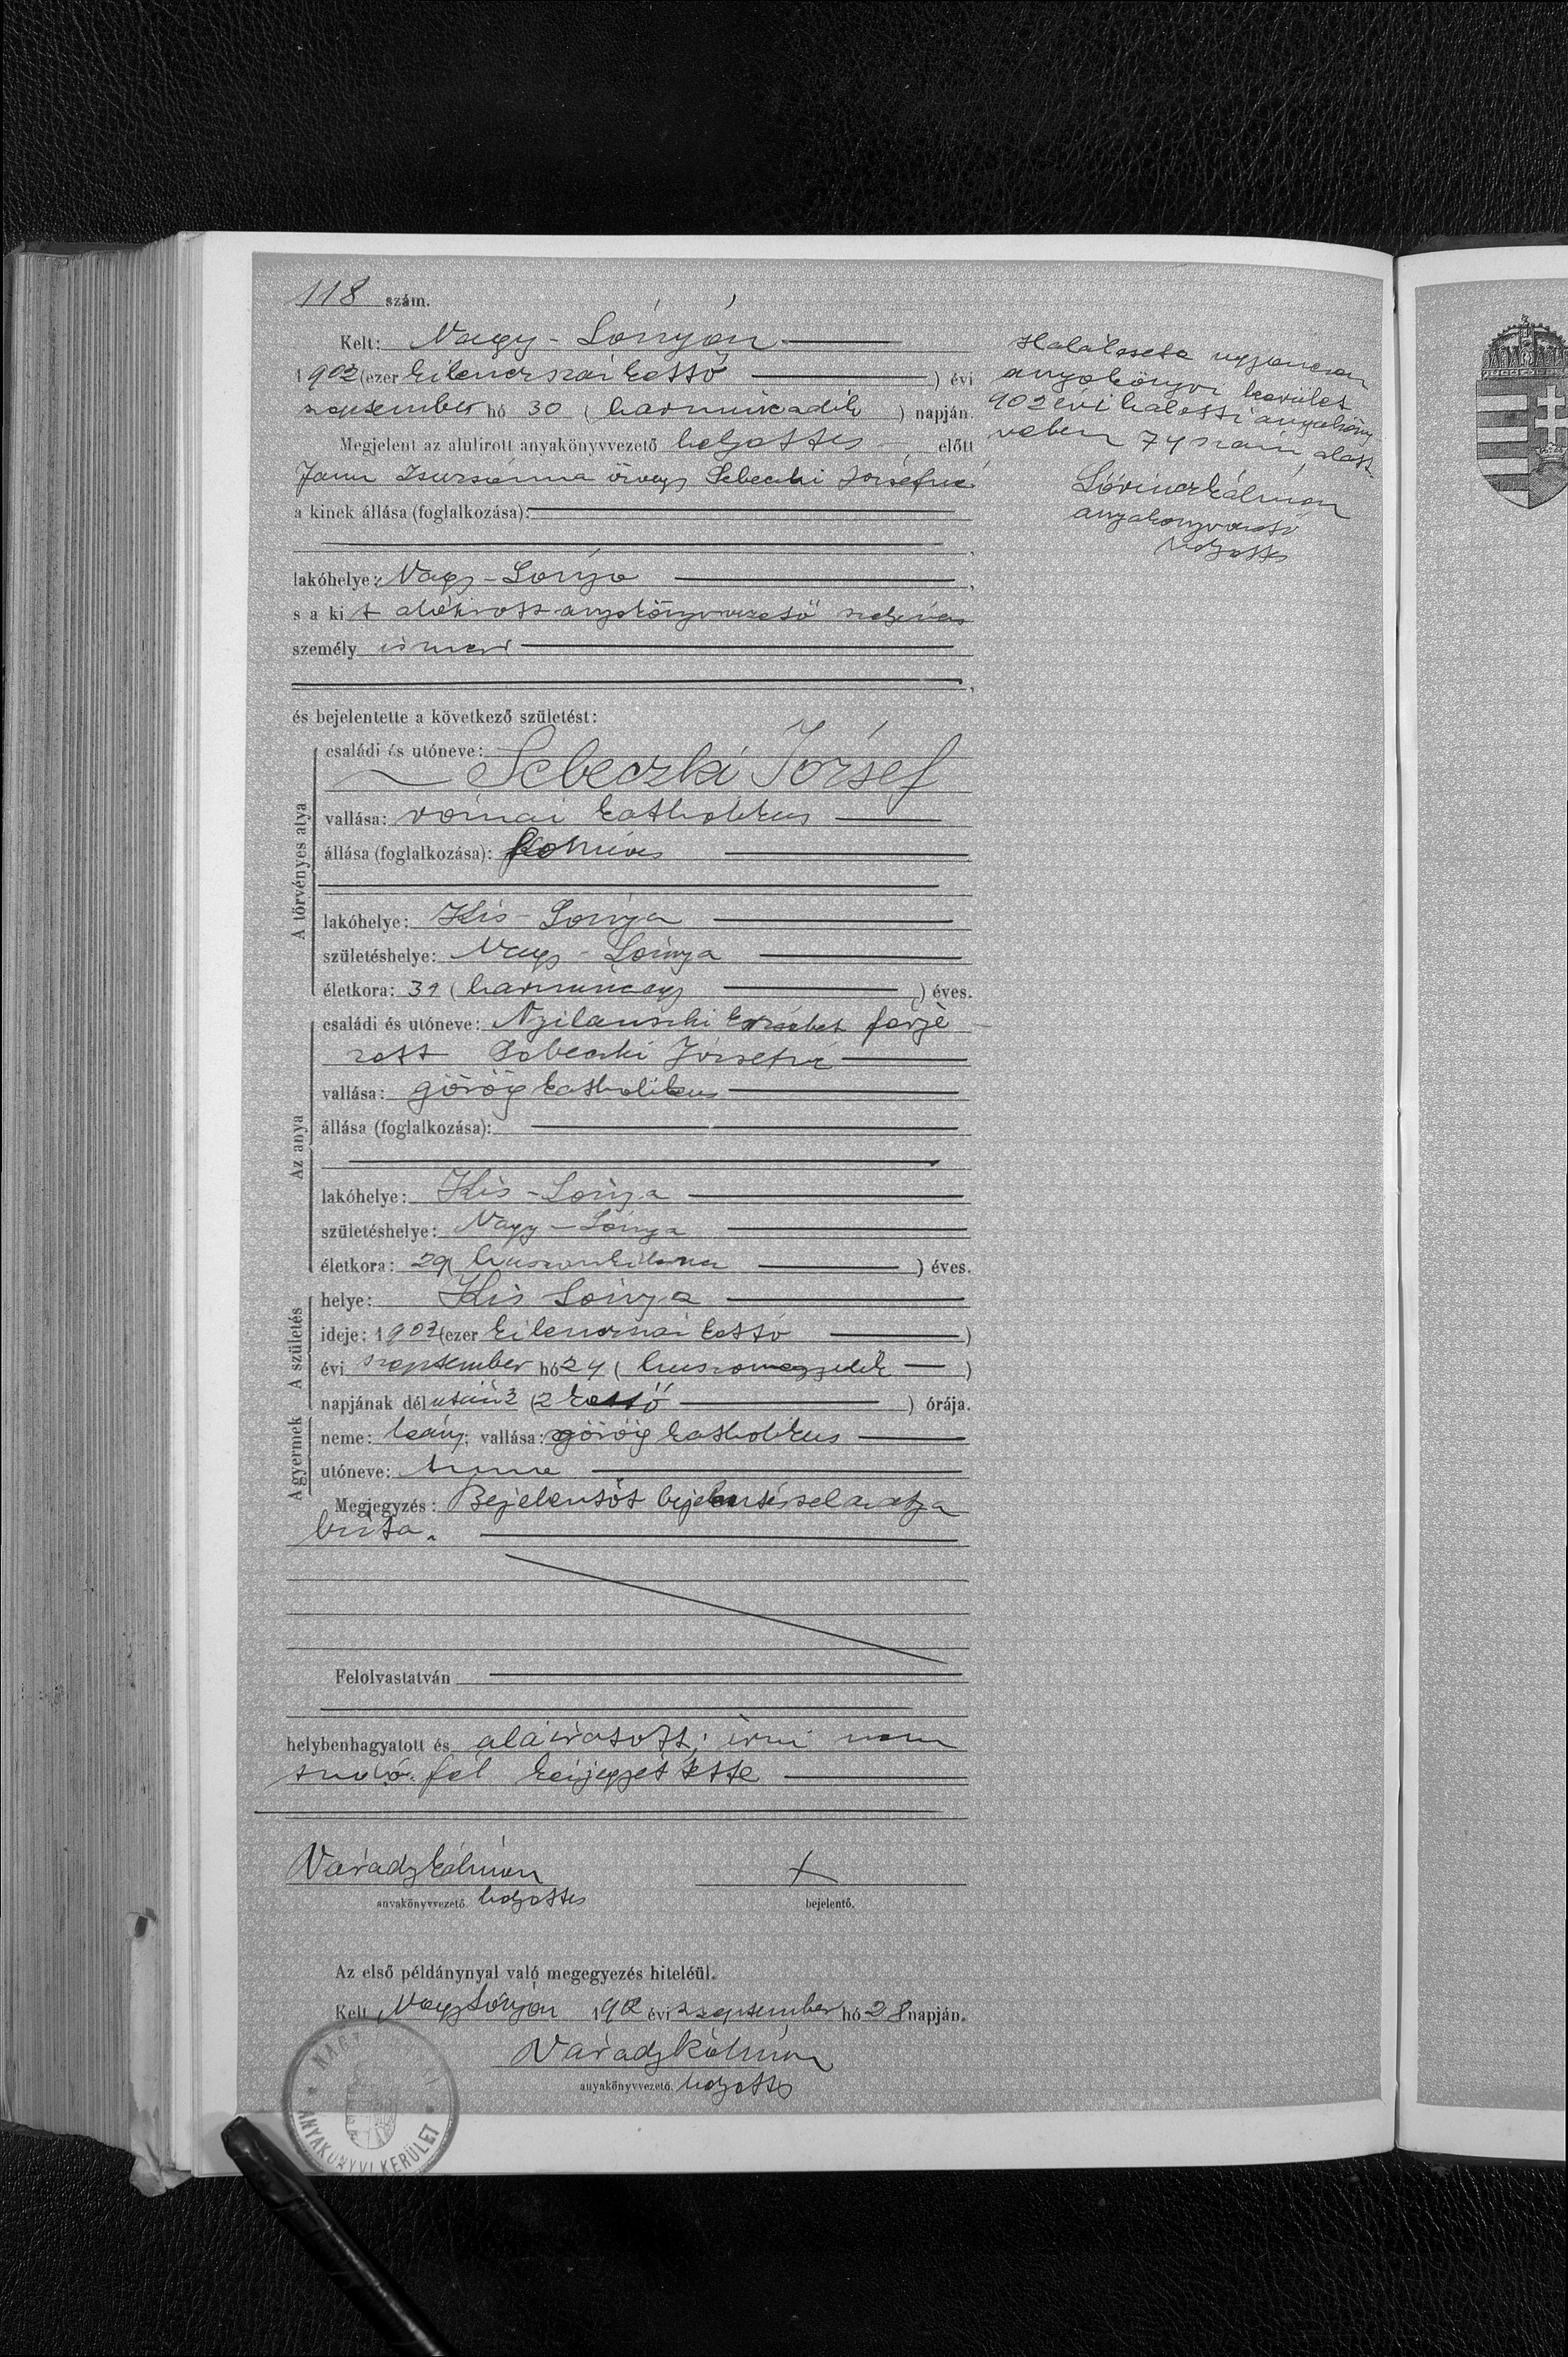 118 szám.
Kelt: Nagy-Lónyán
1902 (ezer kilenczszáz kettő) évi
szeptember hó 30 (harminczadik) napján.
Megjelent az alulirott anyakönyvvezető helyettes előtt
Zsuzsánna özvegy Sebeczki Józsefné
a kinek állása (foglalkozása):
lakóhelye: Nagy-Lónya,
s a kit alólirott anyakönyvvezető helyettes
személy ismer
és bejelentette a következő születést:
A törvényes atya
családi és utóneve:
Sebeczki József
vallása: római katholikus
állása (foglalkozása):
lakóhelye: Kis-Lónya
születéshelye: Nagy-Lónya
életkora: 31 (harminczegy) éves.
Az anya
családi és utóneve: Erzsébet férje
zett Sebeczki Józsefné
vallása: görög katholikus
állása (foglalkozása):
lakóhelye: Kis-Lónya
születéshelye: Nagy-Lónya
életkora: 29 (huszonkilencz) éves.
A születés
helye: Kis Lónya
ideje: 1902 (ezer kilenczszáz kettő)
évi szeptember hó 24 (huszonnegyedik)
napjának délután 2 (kettő) órája.
A gyermek
neme: leány; vallása: görög katholikus
utóneve: Anna
Megjegyzés: Bejelentőt bejelentéssel az atya
bizta.
Felolvastatván
helybenhagyatott és aláiratott; irni nem
tudó fél kézjegyét tette
Várady Kálmán
anyakönyvvezető helyettes
+
bejelentő.
Az első példánynyal való megegyezés hiteléül.
Kelt Nagy Lónyán 1902 évi szeptember hó 28 napján.
Várady Kálmán
anyakönyvvezető. helyettes
NAGY
ANYAKÖNYVI KERÜLET
Halálesete ugyanezen
anyakönyvi kerület
902 évi halotti anyaköny
vében 74 szám alatt
Kálmán
anyakönyvvezető
helyettes